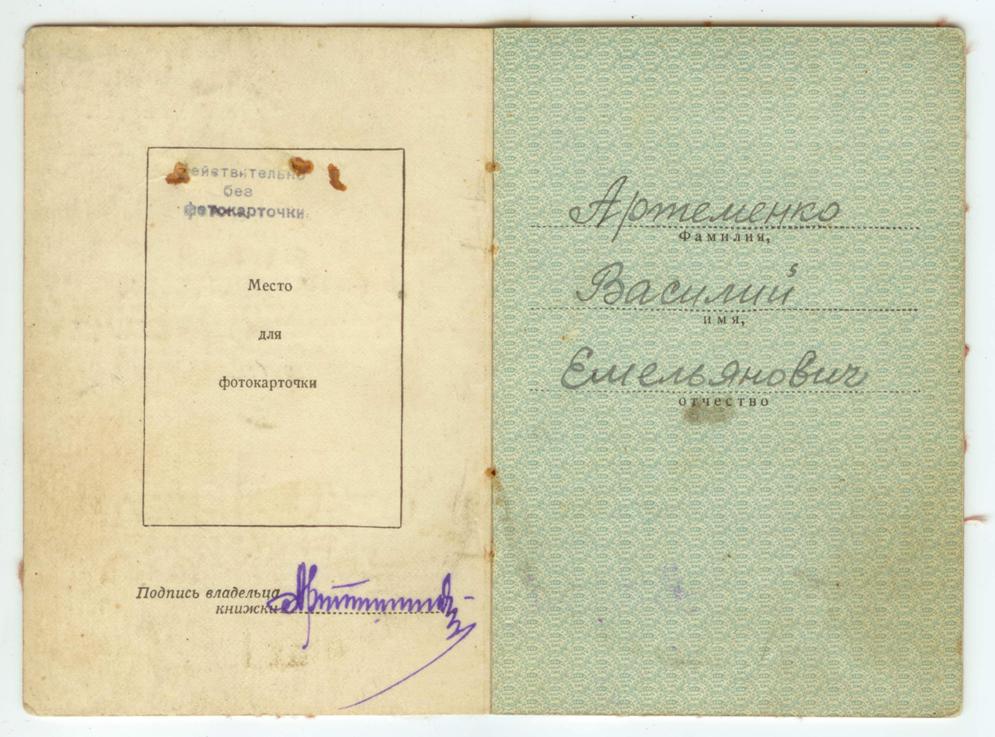 Действительно
без
фотокарточки
Место
для
фотокарточки
Подпись владельца
книжки
Артеменко
Фамилия,
Василий
имя,
Емельянович
отчество